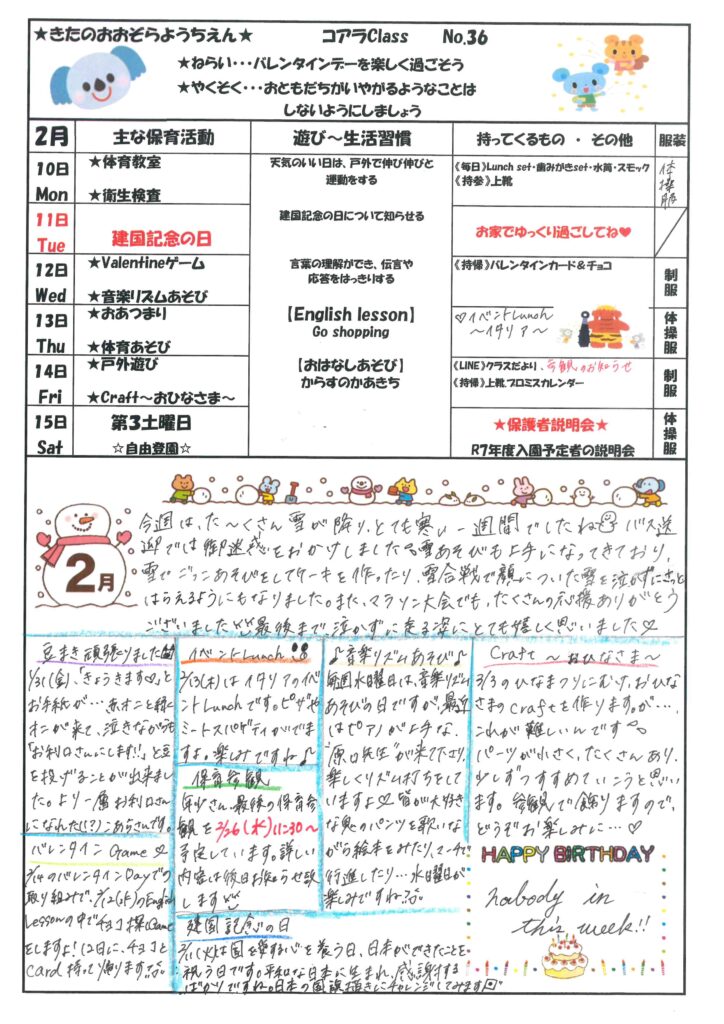 ★きたのおおぞらようちえん★ コアラClass No.36
★ねらい・・・バレンタインデーを楽しく過ごそう
★やくそく・・・おともだちがいやがるようなことは
しないようにしましょう
2月 主な保育活動 遊び～生活習慣 持ってくるもの ・ その他 服装
10日 Mon
★体育教室
★衛生検査
天気のいい日は、戸外で伸び伸びと
運動をする
《毎日》Lunch set・歯みがきset・水筒・スモック
《持参》上靴
体操服
11日 Tue
建国記念の日
建国記念の日について知らせる
お家でゆっくり過ごしてね♥
12日 Wed
★Valentineゲーム
★音楽リズムあそび
言葉の理解ができ、伝言や
応答をはっきりする
《持帰》バレンタインカード＆チョコ
制服
13日 Thu
★おあつまり
★体育あそび
【English lesson】
Go shopping
♡イベントLunch
～イタリア～
体操服
14日 Fri
★戸外遊び
★Craft～おひなさま～
【おはなしあそび】
からすのかあきち
《LINE》クラスだより、参観のお知らせ
《持帰》上靴、プロミスカレンダー
制服
15日 Sat
第3土曜日
☆自由登園☆
★保護者説明会★
R7年度入園予定者の説明会
体操服
2月
今週は、た～くさん雪が降り、とても寒い一週間でしたね バス送
迎では御迷惑をおかけしました 雪あそびも上手になってきており、
雪でごっこあそびをしてケーキを作ったり、雪合戦で顔についた雪を泣かずにさっと
はらえるようにもなりました。また、マラソン大会でも、たくさんの応援ありがとう
ございました 最後まで泣かずに走る姿にとても嬉しく思いました♡
豆まき頑張りました
1/31(金)、「きょうきます♡」と
お手紙が… 赤オニと緑
オニが来て、泣きながらも
「お利口さんにします!!」と豆
を投げることが出来まし
た。より一層お利口さん
になれた(!?)こあらさんです。
バレンタインGame♡
2/14のバレンタインDayの
取り組みで、2/12(水)のEnglish
Lessonの中でチョコ探しGame
をしますよ！12日に、チョコと
Card持って帰ります。
イベントLunch
2/13(木)はイタリアのイベ
ントLunchです。ピザや
ミートスパゲティがでま
すよ。楽しみですね♪
保育参観
年少さん、最後の保育参
観を2/26(水)11:30～
予定しています。詳しい
内容は後日お知らせ致
します
建国記念の日
2/11(火)は国を愛する心を養う日、日本ができたことを
祝う日です。平和な日本に生まれ、感謝する
ばかりですね。日本の国旗描きにチャレンジしてみます
♪音楽リズムあそび♪
毎週水曜日は、音楽リズム
あそびの日ですが、最近
はピアノが上手な、
"原口先生"が来て下さり、
楽しくリズム打ちをして
いますよ♡ 皆が大好き
な鬼のパンツを歌いな
がら絵本をみたり、マーチで
行進したり… 水曜日が
楽しみですね。
Craft ～おひなさま～
3/3のひなまつりにむけ、おひな
さまのCraftを作りますが…、
これが難しいんです
パーツが小さく、たくさんあり、
少しずつすすめていこうと思い
ます。参観で飾りますので、
どうぞお楽しみに…♡
HAPPY BIRTHDAY
nobody in
this week!!